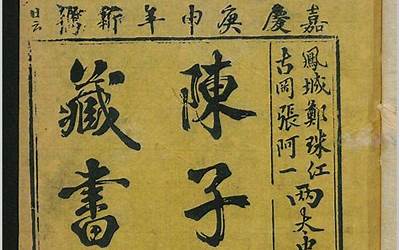 嘉慶庚申年新鐫
鳳城鄭珠江
古岡張阿一
兩太
陳子
藏書